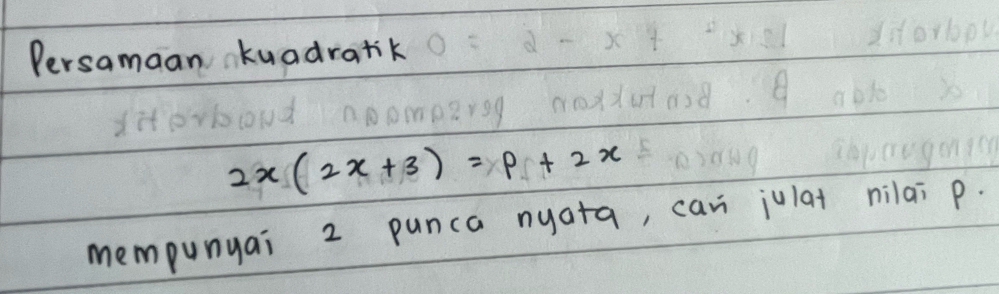 Persamaan kuadratik
2x(2x+3) = p + 2x
mempunyai 2 punca nyata, cari julat nilai p.